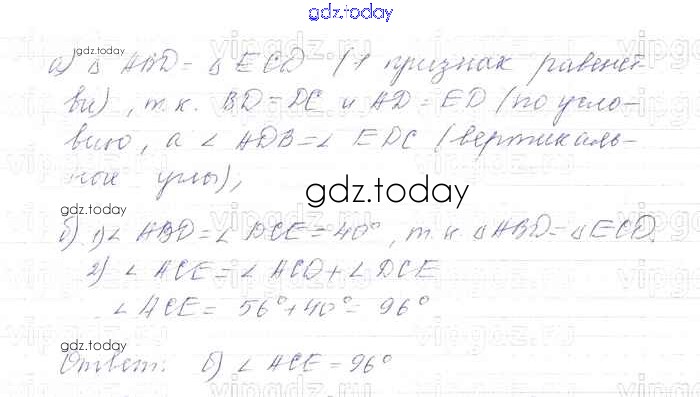 gdz.today
jgdz.today
а) △ ABD = △ ECD (1 признак равенст-
ва), т.к. BD = DC и AD = ED (по усло-
вию, а ∠ ADB = ∠ EDC (вертикаль-
ные углы),
gdz.today
gdz.today
б) 1) ∠ ABD = ∠ DCE = 40°, т.к △ ABD = △ ECD.
2) ∠ ACE = ∠ ACD + ∠ DCE
∠ ACE = 56° + 40° = 96°
gdz.today
Ответ: б) ∠ ACE = 96°